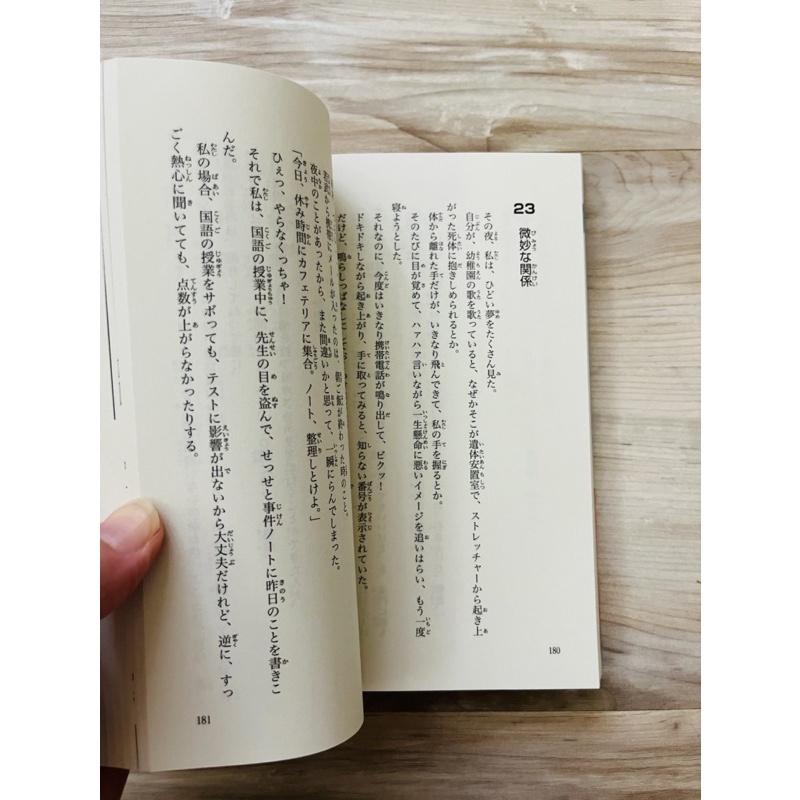 23
微妙な関係
その夜、私は、ひどい夢をたくさん見た。
自分が、幼稚園の歌を歌っていると、なぜかそこが遺体安置室で、ストレッチャーから起き上
がった死体に抱きしめられるとか。
体から離れた手だけが、いきなり飛んできて、私の手を握るとか。
そのたびに目が覚めて、ハァハァ言いながら一生懸命に悪いイメージを追いはらい、もう一度
寝ようとした。
それなのに、今度はいきなり携帯電話が鳴り出して、ビクッ!
ドキドキしながら起き上がり、手に取ってみると、知らない番号が表示されていた。
だけど、鳴らしっぱなしにして
180
メールが入ったのは、朝ご飯が終わった時のこと。
夜中のことがあったから、また間違いかと思って、一瞬にらんでしまった。
「今日、休み時間にカフェテリアに集合。ノート、整理しとけよ。」
ひぇっ、やらなくっちゃ!
それで私は、国語の授業中に、先生の目を盗んで、せっせと事件ノートに昨日のことを書きこ
んだ。
私の場合、国語の授業をサボっても、テストに影響が出ないから大丈夫だけれど、逆に、すっ
ごく熱心に聞いてても、点数が上がらなかったりする。
181